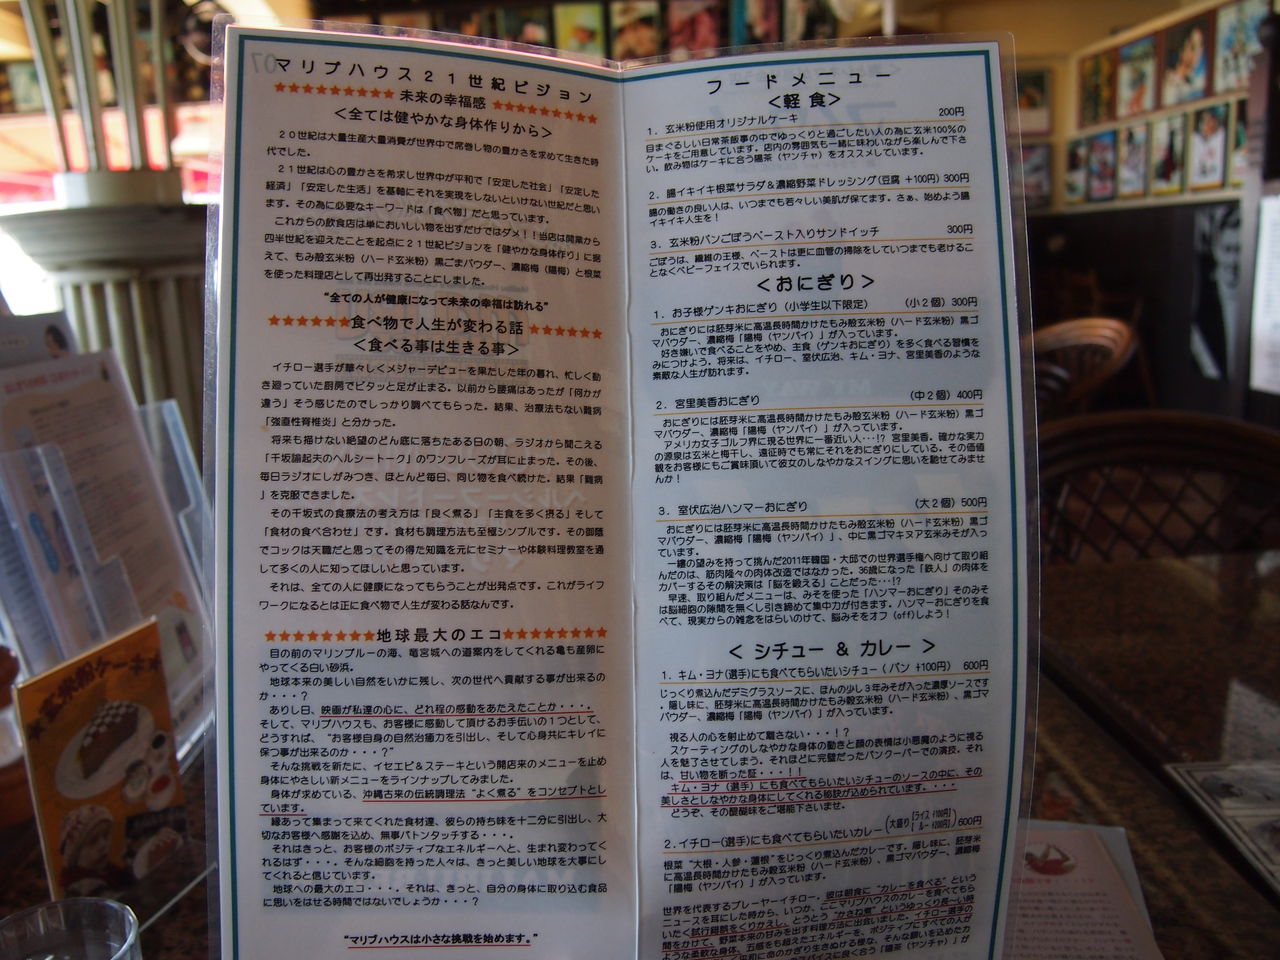 マリブハウス21世紀ビジョン
★★★★★★★★★★未来の幸福感★★★★★★★★★
<全ては健やかな身体作りから>
20世紀は大量生産大量消費が世界中で席巻し物の豊かさを求めて生きた時
代でした。
21世紀は心の豊かさを希求し世界中が平和で「安定した社会」「安定した
経済」「安定した生活」を基軸にそれを実現をしないといけない世紀だと思い
ます。その為に必要なキーワードは「食べ物」だと思っています。
これからの飲食店は単においしい物を出すだけではダメ!!当店は開業から
四半世紀を迎えたことを起点に21世紀ビジョンを「健やかな身体作り」に据
えて、もみ殻玄米粉(ハード玄米粉)黒ごまパウダー、濃縮梅(陽梅)と根菜
を使った料理店として再出発することにしました。
“全ての人が健康になって未来の幸福は訪れる”
★★★★★★食べ物で人生が変わる話★★★★★★
<食べる事は生きる事>
イチロー選手が華々しくメジャーデビューを果たした年の暮れ、忙しく動
き廻っていた厨房でピタッと足が止まる。以前から腰痛はあったが「何かが
違う」そう感じたのでしっかり調べてもらった。結果、治療法もない難病
「強直性脊椎炎」と分かった。
将来も描けない絶望のどん底に落ちたある日の朝、ラジオから聞こえる
「千坂諭起夫のヘルシートーク」のワンフレーズが耳に止まった。その後、
毎日ラジオにしがみつき、ほとんど毎日、同じ物を食べ続けた。結果「難病
」を克服できました。
その千坂式の食療法の考え方は「良く煮る」「主食を多く摂る」そして
「食材の食べ合わせ」です。食材も調理方法も至極シンプルです。その御蔭
でコックは天職だと思ってその得た知識を元にセミナーや体験料理教室を通
して多くの人に知ってほしいと思っています。
それは、全ての人に健康になってもらうことが出発点です。これがライフ
ワークになるとは正に食べ物で人生が変わる話なんです。
★★★★★★★★地球最大のエコ★★★★★★★★
目の前のマリンブルーの海、竜宮城への道案内をしてくれる亀も産卵に
やってくる白い砂浜。
地球本来の美しい自然をいかに残し、次の世代へ貢献する事が出来るの
か・・・?
ありし日、映画が私達の心に、どれ程の感動をあたえたことか・・・。
そして、マリブハウスも、お客様に感動して頂けるお手伝いの1つとして、
どうすれば、“お客様自身の自然治癒力を引出し、そして心身共にキレイに
保つ事が出来るのか・・・?”
そんな挑戦を新たに、イセエビ&ステーキという開店来のメニューを止め
身体にやさしい新メニューをラインナップしてみました。
身体が求めている、沖縄古来の伝統調理法“よく煮る”をコンセプトとし
ています。
縁あって集まって来てくれた食材達、彼らの持ち味を十二分に引出し、大
切なお客様へ感謝を込め、無事バトンタッチする・・・。
それはきっと、お客様のポジティブなエネルギーへと、生まれ変わってく
れるはず・・・。そんな細胞を持った人々は、きっと美しい地球を大事にし
てくれると信じています。
地球への最大のエコ・・・。それは、きっと、自分の身体に取り込む食品
に思いをはせる時間ではないでしょうか・・・?
“マリブハウスは小さな挑戦を始めます。”
フードメニュー
<軽食>
1. 玄米粉使用オリジナルケーキ 200円
目まぐるしい日常茶飯事の中でゆっくりと過ごしたい人の為に玄米100%の
ケーキをご用意しています。店内の雰囲気も一緒に味わいながら楽しんで下さ
い。飲み物はケーキに合う陽茶(ヤンチャ)をオススメしています。
2. 腸イキイキ根菜サラダ&濃縮野菜ドレッシング(豆腐 +100円) 300円
腸の働きの良い人は、いつまでも若々しい美肌が保てます。さぁ、始めよう腸
イキイキ人生を!
3. 玄米粉パンごぼうペースト入りサンドイッチ 300円
ごぼうは、繊維の王様、ペーストは更に血管の掃除をしていつまでも老けるこ
となくベビーフェイスでいられます。
<おにぎり>
1. お子様ゲンキおにぎり(小学生以下限定) (小2個) 300円
おにぎりには胚芽米に高温長時間かけたもみ殻玄米粉(ハード玄米粉)黒ゴ
マパウダー、濃縮梅「陽梅(ヤンバイ)」が入っています。
好き嫌いで食べることをやめ、主食(ゲンキおにぎり)を多く食べる習慣を
みにつけよう。将来は、イチロー、室伏広治、キム・ヨナ、宮里美香のような
素敵な人生が訪れます。
2. 宮里美香おにぎり (中2個) 400円
おにぎりには胚芽米に高温長時間かけたもみ殻玄米粉(ハード玄米粉)黒ゴ
マパウダー、濃縮梅「陽梅(ヤンバイ)」が入っています。
アメリカ女子ゴルフ界に現る世界に一番近い人・・・!? 宮里美香。確かな実力
の源泉は玄米と梅干し、遠征時でも常にそれをおにぎりにしている。その価値
観をお客様にもご賞味頂いて彼女のしなやかなスイングに思いを馳せてみませ
んか!
3. 室伏広治ハンマーおにぎり (大2個) 500円
おにぎりには胚芽米に高温長時間かけたもみ殻玄米粉(ハード玄米粉)黒ゴ
マパウダー、濃縮梅「陽梅(ヤンバイ)」、中に黒ゴマキヌア玄米みそが入っ
ています。
一縷の望みを持って挑んだ2011年韓国・大邱での世界選手権へ向けて取り組
んだのは、筋肉隆々の肉体改造ではなかった。36歳になった「鉄人」の肉体を
カバーするその解決策は「脳を鍛える」ことだった・・・!?
早速、取り組んだメニューは、みそを使った「ハンマーおにぎり」そのみそ
は脳細胞の隙間を無くし引き締めて集中力が付きます。ハンマーおにぎりを食
べて、現実からの雑念をはらいのけて、脳みそをオフ(off)しよう!
<シチュー & カレー>
1. キム・ヨナ(選手)にも食べてもらいたいシチュー(パン +100円) 600円
じっくり煮込んだデミグラスソースに、ほんの少し3年みそが入った濃厚ソースです
。隠し味に、胚芽米に高温長時間かけたもみ殻玄米粉(ハード玄米粉)、黒ゴマ
パウダー、濃縮梅「陽梅(ヤンバイ)」が入っています。
視る人の心を射止めて離さない・・・!?
スケーティングのしなやかな身体の動きと顔の表情は小悪魔のように視る
人を魅了させてしまう。それほどに完璧だったバンクーバーでの演技。それ
は、甘い物を断った証・・・!!
キム・ヨナ(選手)にも食べてもらいたいシチューのソースの中に、その
美しさとしなやかな身体にしてくれる秘訣が込められています。・・・
どうぞ、その醍醐味をご堪能下さいませ。
2. イチロー(選手)にも食べてもらいたいカレー(大盛り ライス +100円 ルー +200円) 600円
根菜“大根・人参・蓮根”をじっくり煮込んだカレーです。隠し味に、胚芽米
に高温長時間かけたもみ殻玄米粉(ハード玄米粉)、黒ゴマパウダー、濃縮梅
「陽梅(ヤンバイ)」が入っています。
世界を代表するプレーヤーイチロー。彼は朝食に“カレーを食べる”という
ニュースを耳にした時から、いつか、ここマリブハウスのカレーを食べてもら
いたく試行錯誤をくりかえし、とうとう“かさね煮”というゆっくり長〜い時
間をかけて、野菜本来の甘みを出す料理方法に出会いました。イチロー選手の
ような柔軟な身体、五感をも超えたエネルギーを、ポジティブにすべての人が
玄米粉ケーキ